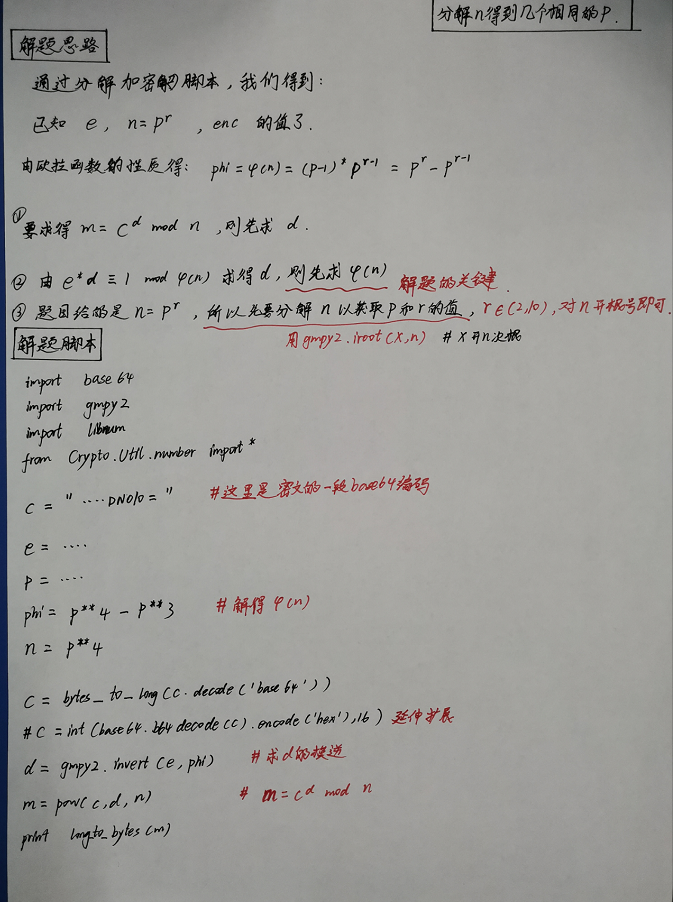 分解n得到几个相同的p.
解题思路
通过分解加密解脚本，我们得到：
已知 e, n=p^r , enc 的值了.
由欧拉函数的性质得： phi=φ(n)=(p-1)*p^{r-1} = p^r-p^{r-1}
① 要求得 m=c^d mod n ,则先求 d.
② 由 e*d≡1 mod φ(n) 求得d, 则先求 φ(n) 解题的关键.
③ 题目给的是 n=p^r , 所以先要分解 n 以获取 p 和 r 的值, r∈(2,10), 对 n 开根号即可.
用gmpy2.iroot(x,n) # x开n次根
解题脚本
import base64
import gmpy2
import libnum
from Crypto.Util.number import *
c = "....DNO10=" #这里是密文的一段base64编码
e = ....
p = ....
phi = p**4 - p**3 #解得 φ(n)
n = p**4
c = bytes_to_long(c.decode('base64'))
#c=int(base64.b64decode(c).encode('hex'),16) 延伸扩展
d = gmpy2.invert(e,phi) #求d的模逆
m = pow(c,d,n) # m=c^d mod n
print long_to_bytes(m)